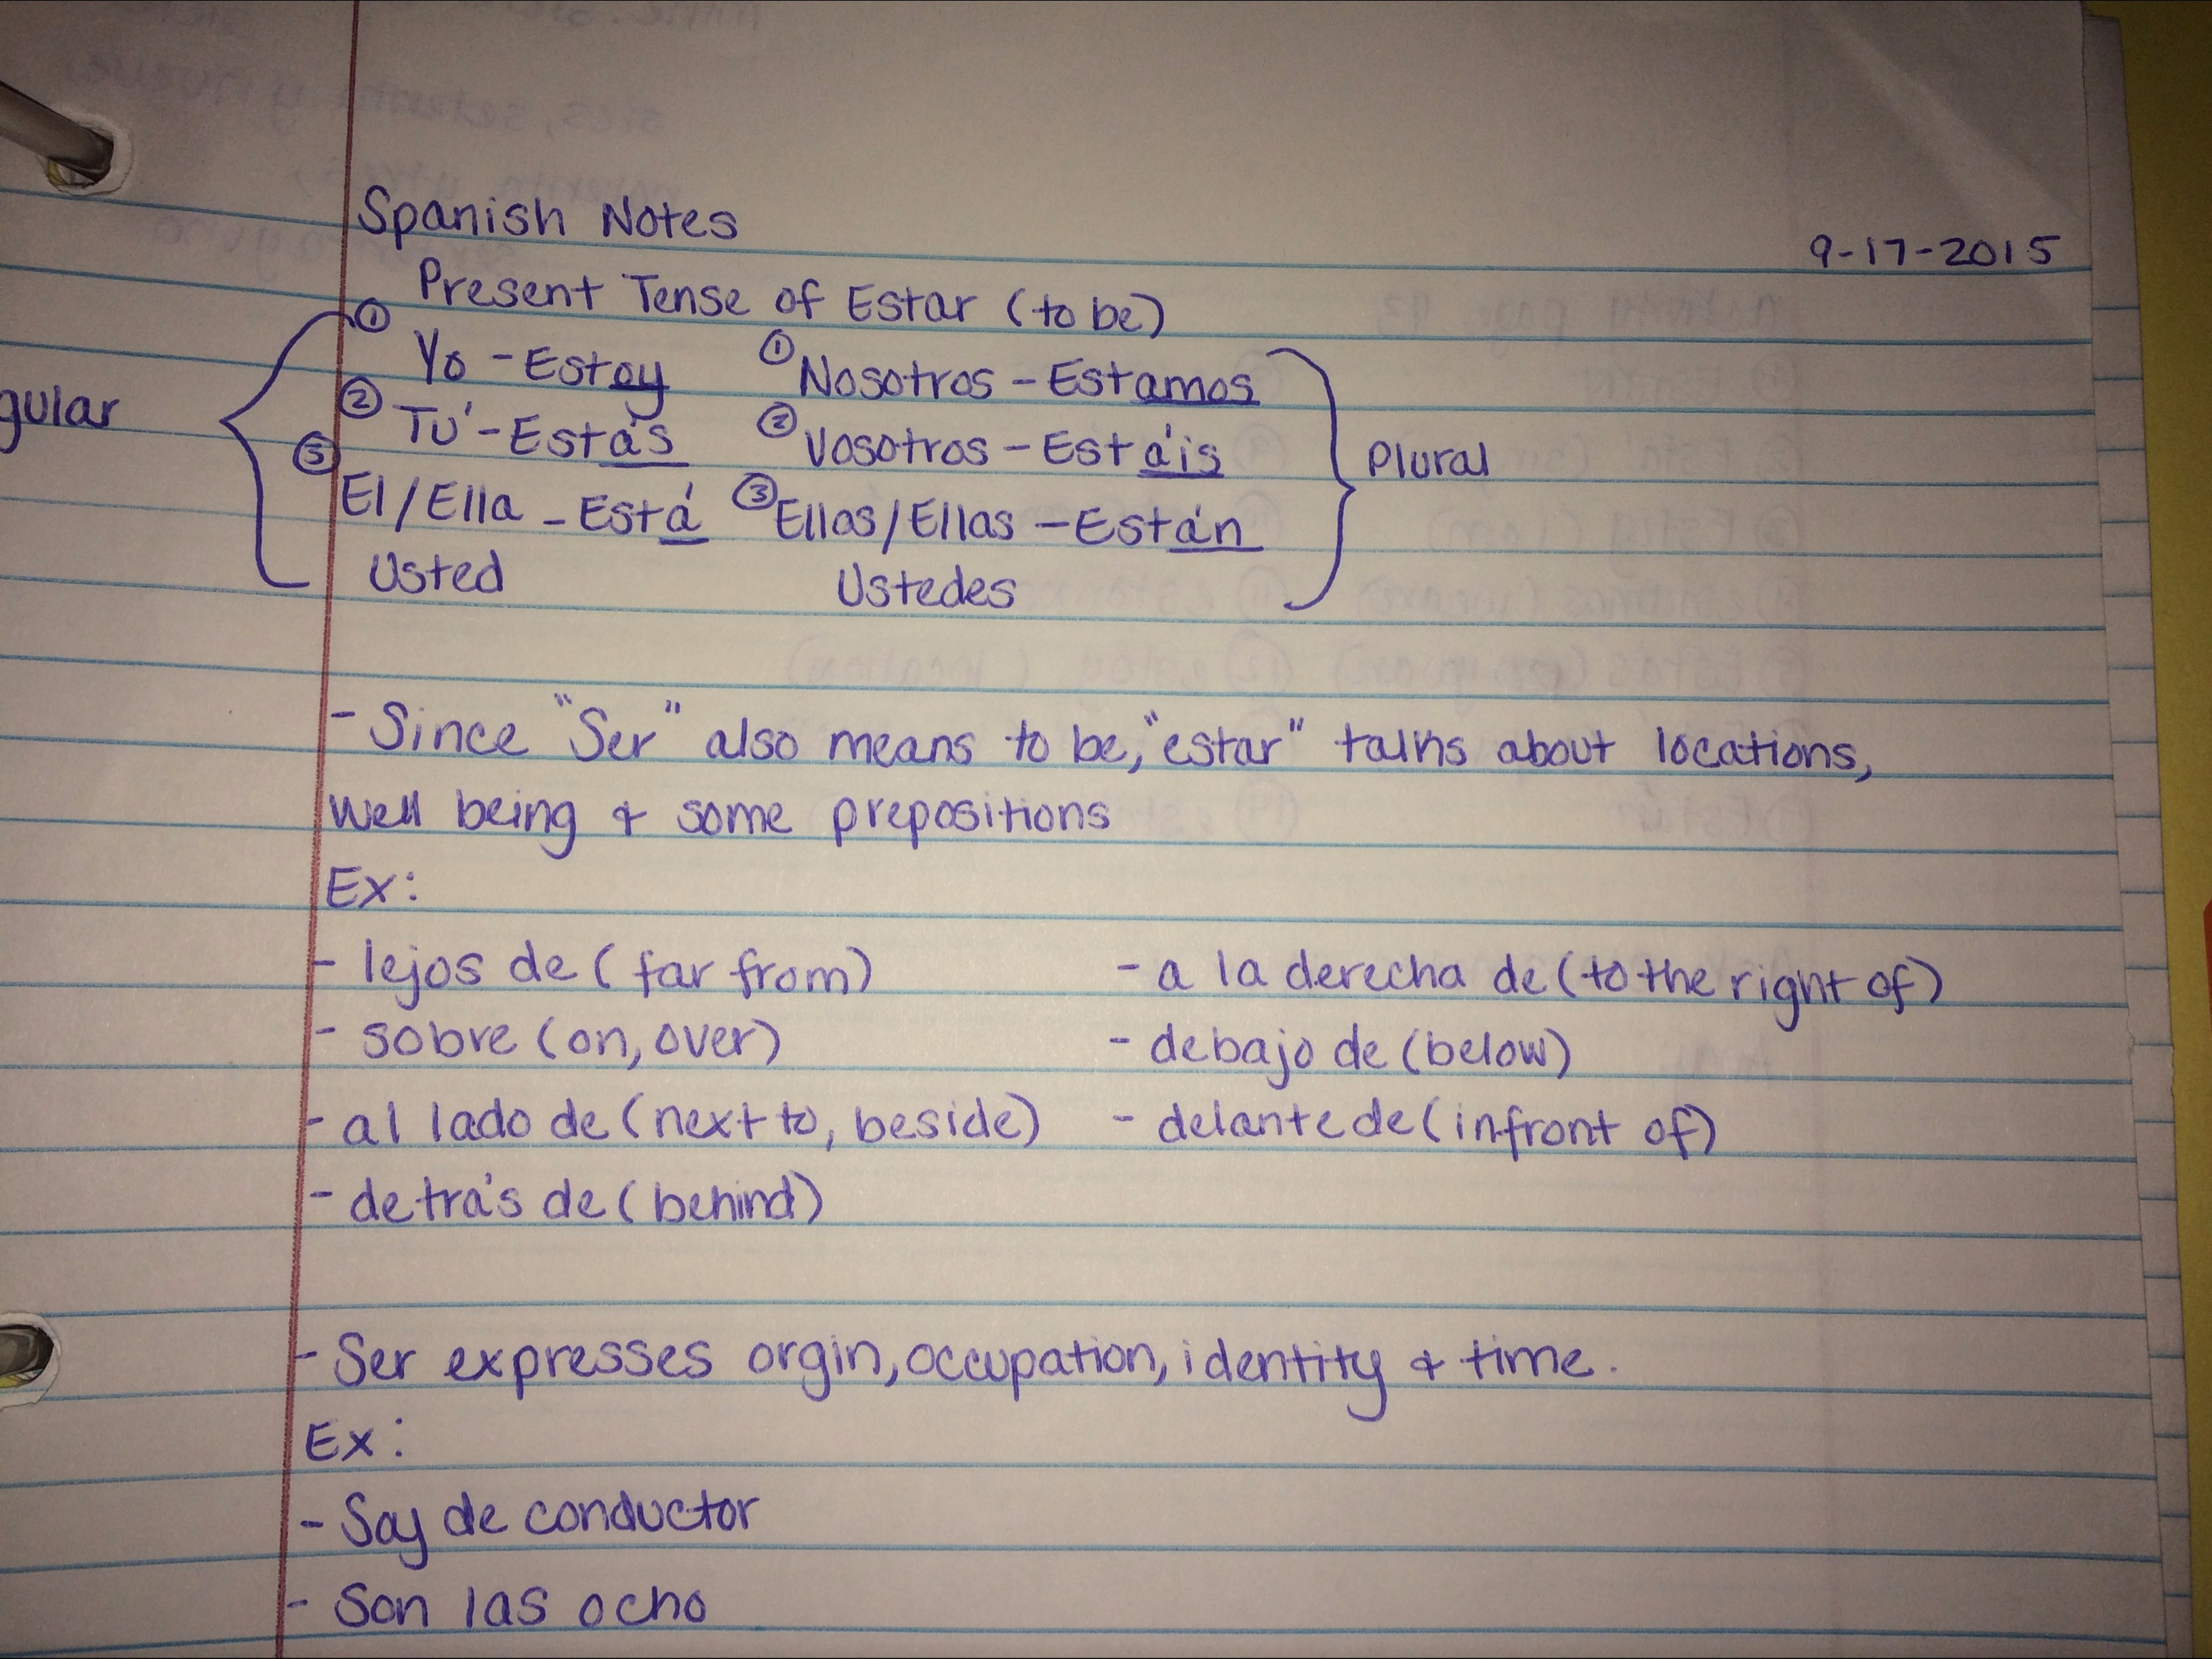 Spanish Notes
9-17-2015
Present Tense of Estar (to be)
① Yo - Estoy ① Nosotros - Estamos
gular ② Tú - Estás ② Vosotros - Estáis Plural
③ El/Ella - Está ③ Ellos/Ellas - Están
Usted Ustedes
- Since "Ser" also means to be, "estar" talks about locations,
well being & some prepositions
Ex:
- lejos de (far from) - a la derecha de (to the right of)
- sobre (on, over) - debajo de (below)
- al lado de (next to, beside) - delante de (infront of)
- detrás de (behind)
- Ser expresses orgin, occupation, identity & time.
Ex:
- Soy de conductor
- Son las ocho